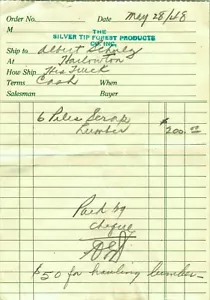 Order No. Date May 28/48
M
THE
SILVER TIP FOREST PRODUCTS
CO., INC.
Ship to Albert Schulz
At Harlowton
How Ship His Truck
Terms Cash When
Salesman Buyer
6 Piles Scrap $
Lumber 200.00
Paid by
cheque
$50 for hauling lumber